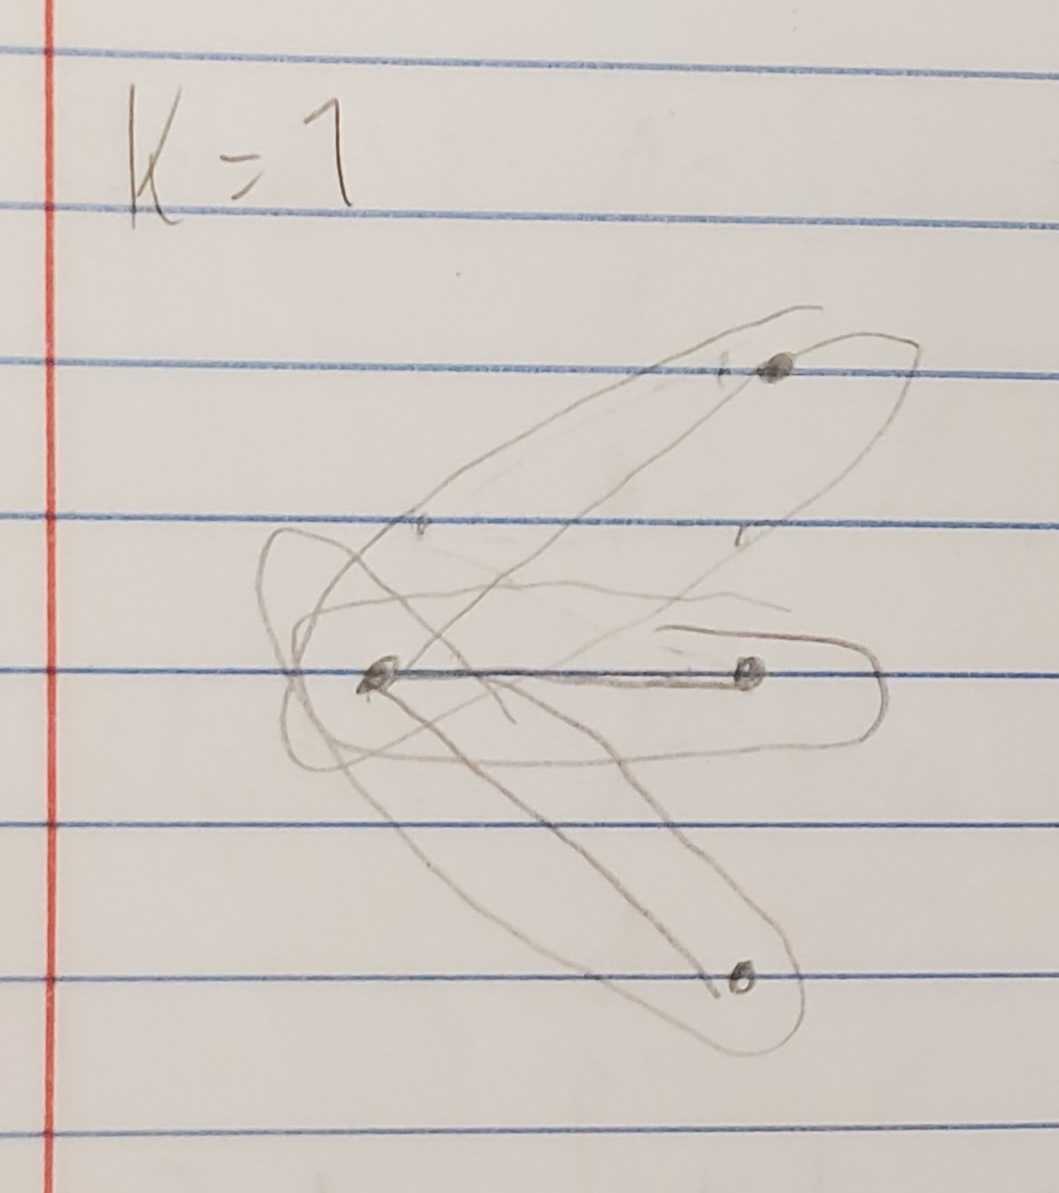 K = 1